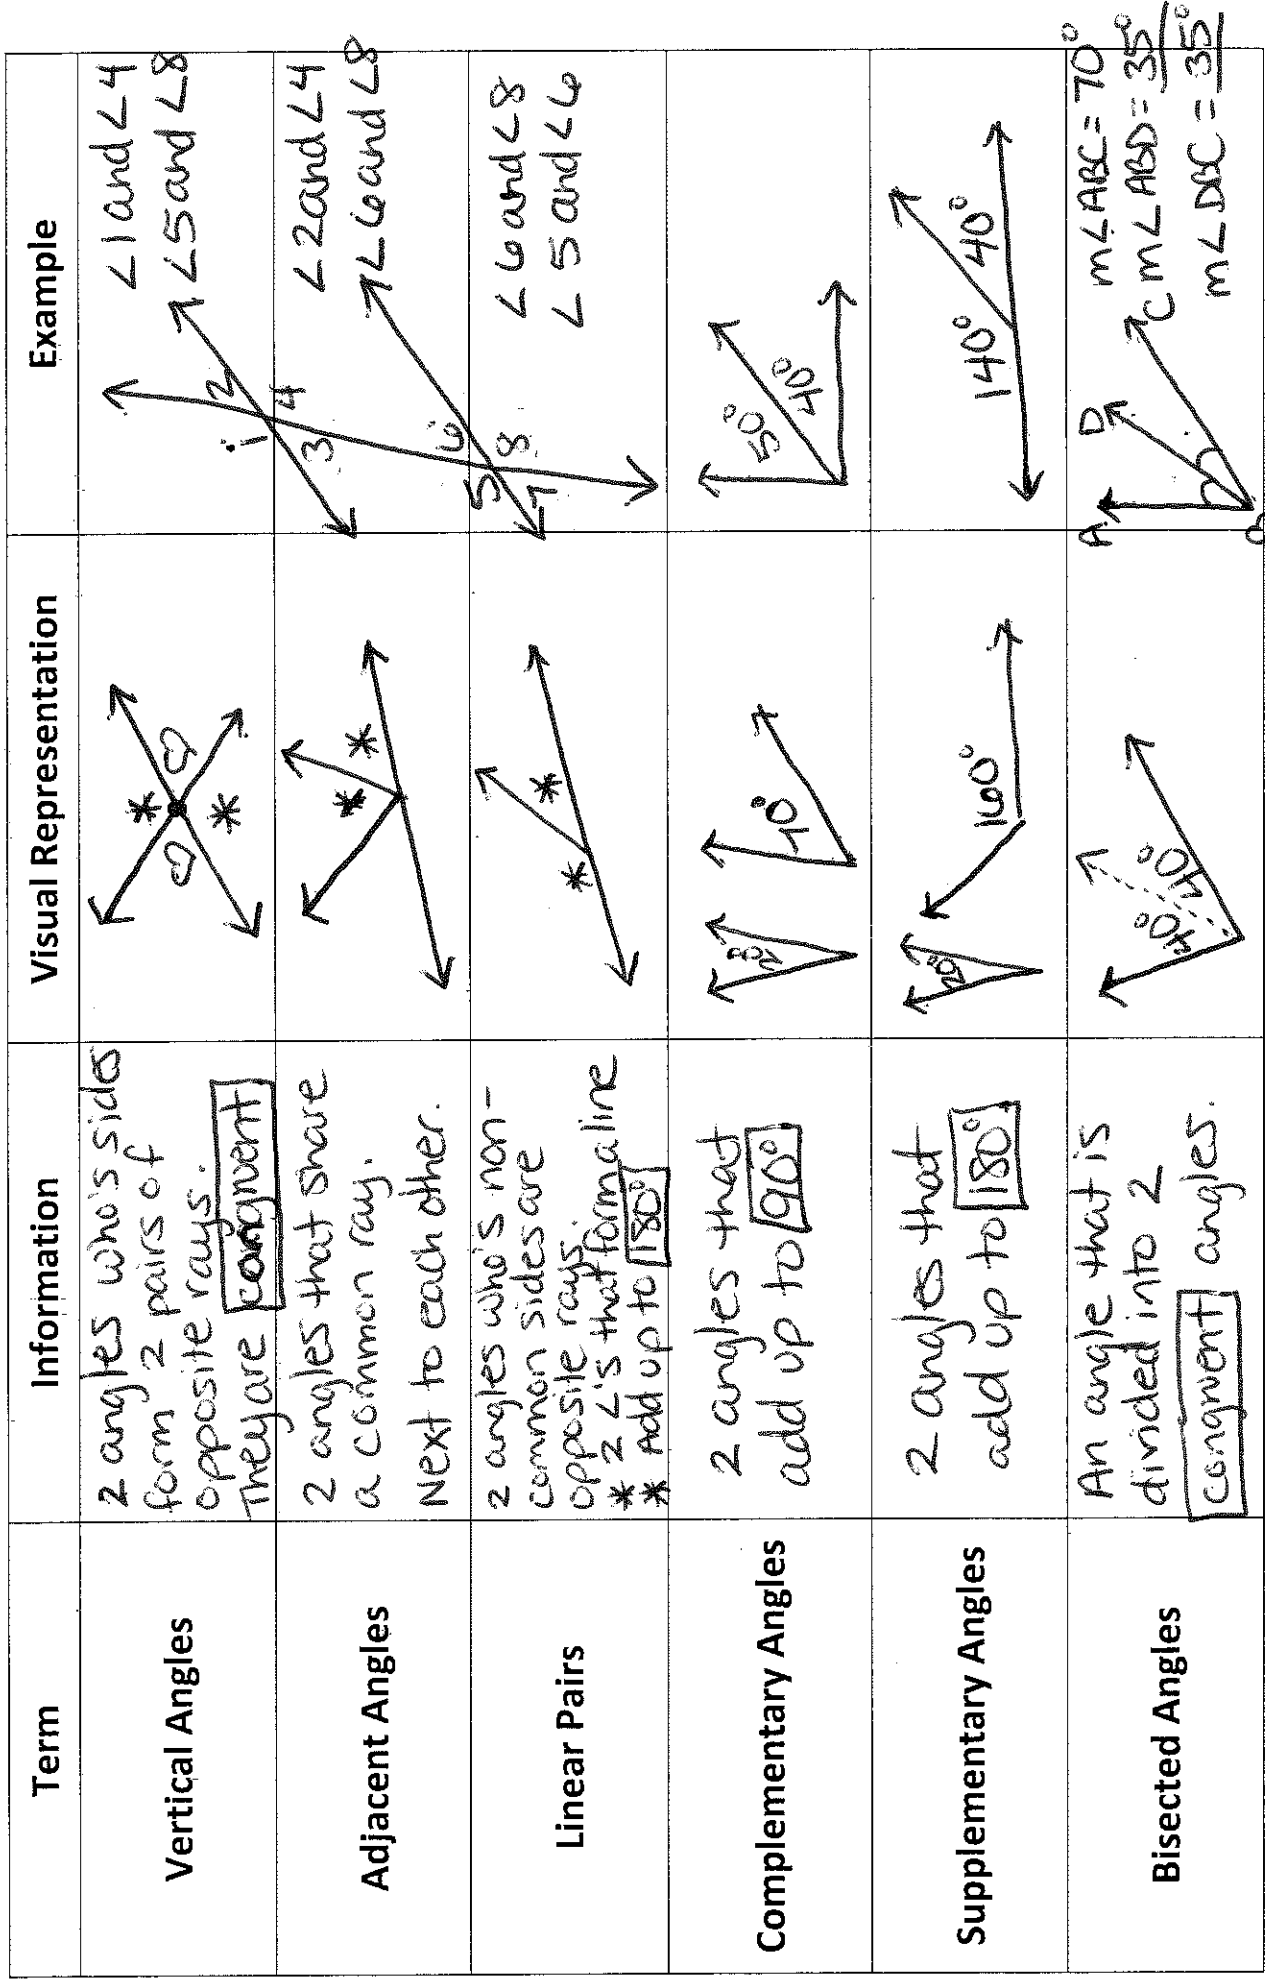 Term
Information
Visual Representation
Example
Vertical Angles
2 angles who's sides
form 2 pairs of
opposite rays.
They are congruent
∠1 and ∠4
∠5 and ∠8
1
2
3
4
5
6
7
8
Adjacent Angles
2 angles that share
a common ray.
Next to each other.
∠2 and ∠4
∠6 and ∠8
Linear Pairs
2 angles who's non-
common sides are
opposite rays.
* 2 ∠'s that form a line
* Add up to 180°
∠6 and ∠8
∠5 and ∠6
Complementary Angles
2 angles that
add up to 90°
20°
70°
50°
40°
Supplementary Angles
2 angles that
add up to 180°
20°
160°
140°
40°
Bisected Angles
An angle that is
divided into 2
congruent angles.
40°
40°
A
D
C
B
m∠ABC = 70°
m∠ABD = 35°
m∠DBC = 35°